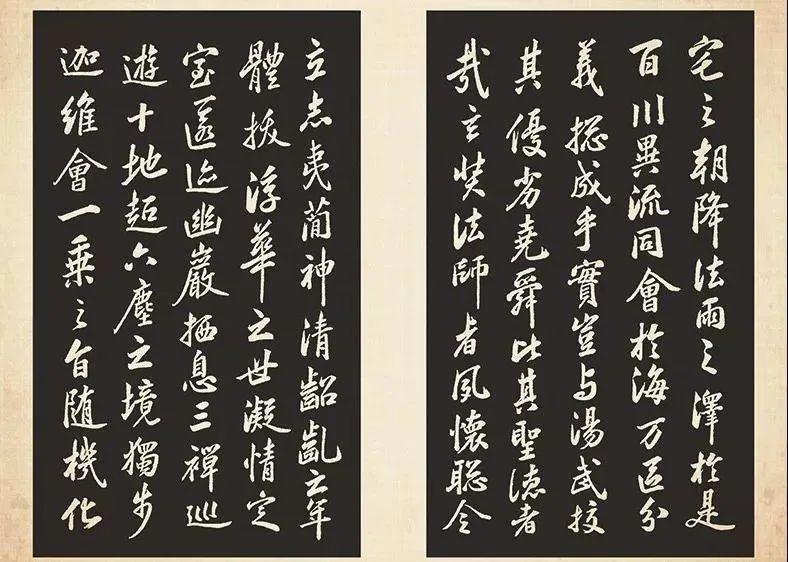 宅之朝降法雨之澤於是
百川異流同會於海万區分
義揔成乎實豈与湯武挍
其優劣堯舜比其聖德者
哉玄奘法師者夙懷聡令
立志夷簡神清齠齔之年
體拔浮華之世凝情定
室匿迹幽巖栖息三禪巡
遊十地超六塵之境獨步
迦維會一乘之旨随機化